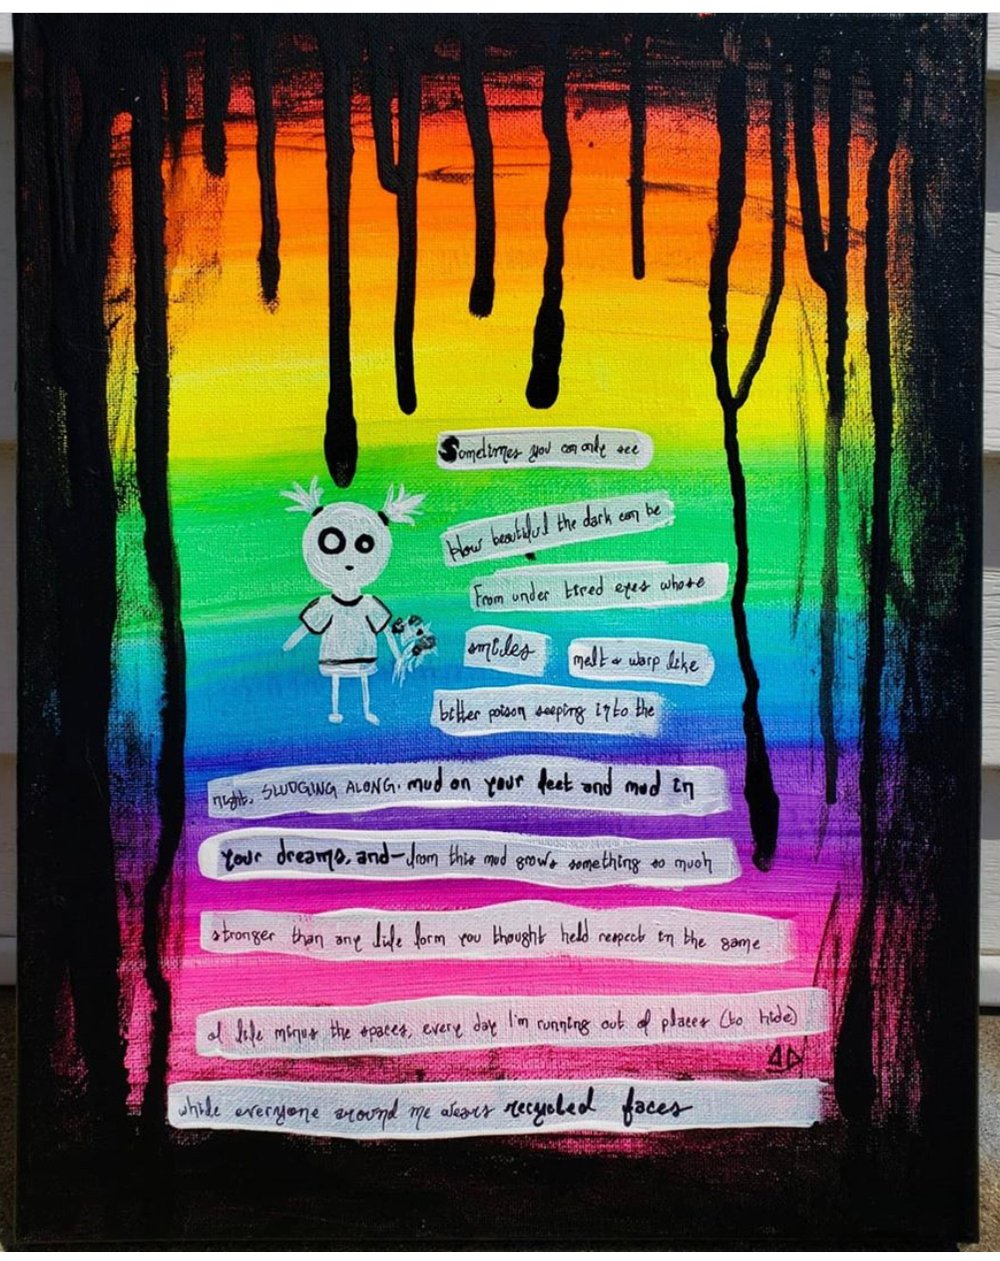 Sometimes you can only see
How beautiful the dark can be
From under tired eyes whose
smiles melt & warp like
bitter poison seeping into the
night, SLUDGING ALONG. mud on your feet and mud in
your dreams, and— from this mud grows something so much
stronger than any life form you thought held respect in the game
of life minus the spaces, every day I'm running out of places (to hide)
while everyone around me wears recycled faces